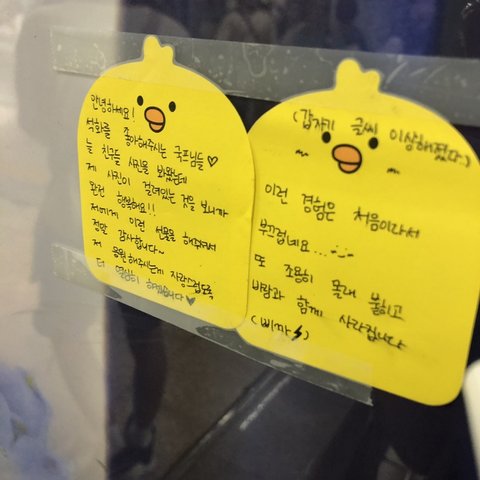 안녕하세요!
석화를 좋아해주시는 국프님들♡
늘 친구들 사진을 봐왔는데
제 사진이 걸려있는 것을 보니까
완전 행복해요!!
저에게 이런 선물을 해주셔서
정말 감사합니다~
저 응원해주시는게 자랑스럽도록
더 열심히 하겠습니다♥
(갑자기 글씨 이상해졌다..)
이런 경험은 처음이라서
부끄럽네요...
또 조용히 몰래 붙이고
바람과 함께 사라집니다
(삐까⚡)